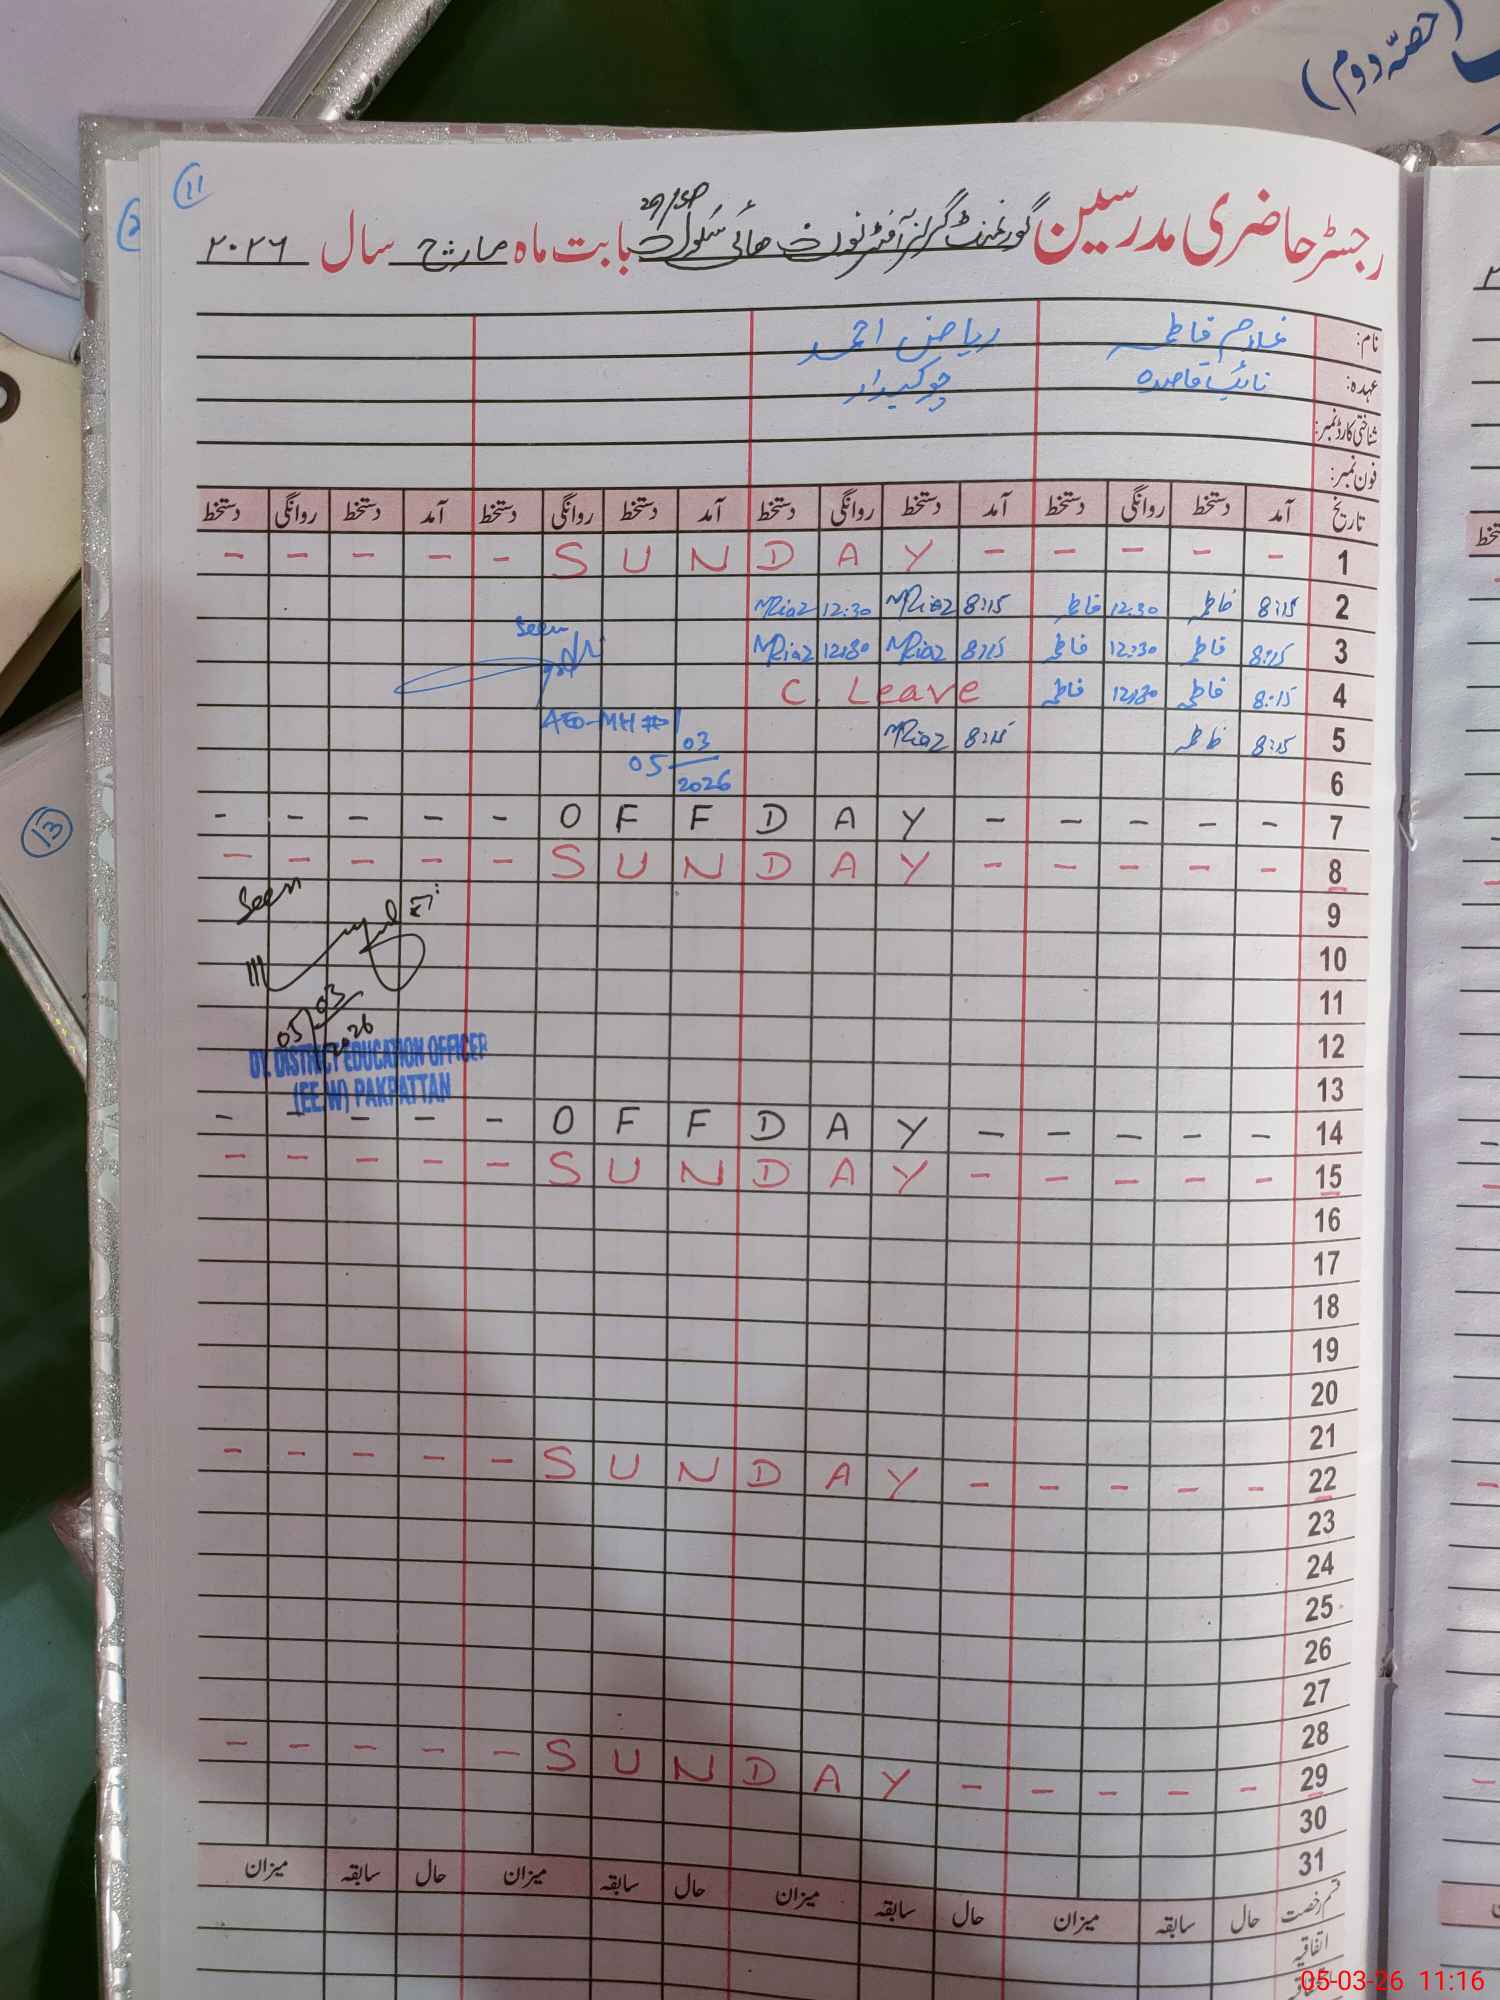 (حصّہ دوم)
11
رجسٹر حاضری مدرسین گورنمنٹ گرلز آفٹرنون ہائی سکول 29/SP بابت ماہ مارچ سال ۲۰۲۶
نام: غلام فاطمہ ریاض احمد
عہدہ: نائب قاصدہ چوکیدار
شناختی کارڈ نمبر:
فون نمبر:
تاریخ آمد دستخط روانگی دستخط آمد دستخط روانگی دستخط آمد دستخط روانگی دستخط آمد دستخط روانگی دستخط
1 - - - - - S U N D A Y - - - - -
2 8:15 فاطمہ 12:30 فاطمہ 8:15 MRiaz 12:30 MRiaz
3 8:15 فاطمہ 12:30 فاطمہ 8:15 MRiaz 12:30 MRiaz
Seen
4 8:15 فاطمہ 12:30 فاطمہ C. Leave
AEO-MH#1
5 8:15 فاطمہ 8:15 MRiaz
05 03 2026
6
7 - - - - - O F F D A Y - - - - -
8 - - - - - S U N D A Y - - - - -
Seen
9
10
11
05/03/2026
12
DY. DISTRICT EDUCATION OFFICER
13
(EE.W) PAKPATTAN
14 - - - - - O F F D A Y - - - - -
15 - - - - - S U N D A Y - - - - -
16
17
18
19
20
21
22 - - - - - S U N D A Y - - - - -
23
24
25
26
27
28
29 - - - - - S U N D A Y - - - - -
30
31
قسم رخصت حال سابقہ میزان حال سابقہ میزان حال سابقہ میزان حال سابقہ میزان
اتفاقیہ
13
05-03-26 11:16